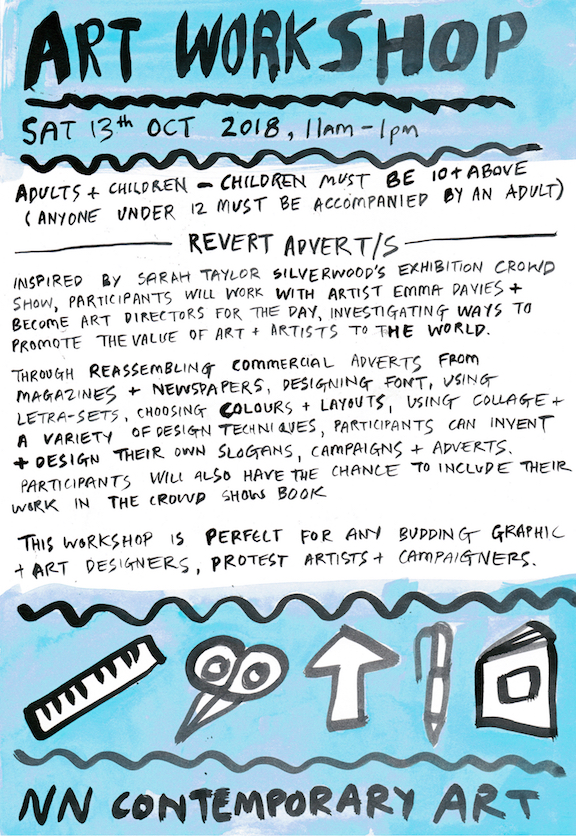 ART WORKSHOP
SAT 13th OCT 2018, 11am-1pm
ADULTS + CHILDREN - CHILDREN MUST BE 10+ ABOVE
(ANYONE UNDER 12 MUST BE ACCOMPANIED BY AN ADULT)
REVERT ADVERT/S
INSPIRED BY SARAH TAYLOR SILVERWOOD'S EXHIBITION CROWD
SHOW, PARTICIPANTS WILL WORK WITH ARTIST EMMA DAVIES +
BECOME ART DIRECTORS FOR THE DAY, INVESTIGATING WAYS TO
PROMOTE THE VALUE OF ART + ARTISTS TO THE WORLD.
THROUGH REASSEMBLING COMMERCIAL ADVERTS FROM
MAGAZINES + NEWSPAPERS, DESIGNING FONT, USING
LETRA-SETS, CHOOSING COLOURS + LAYOUTS, USING COLLAGE +
A VARIETY OF DESIGN TECHNIQUES, PARTICIPANTS CAN INVENT
+ DESIGN THEIR OWN SLOGANS, CAMPAIGNS + ADVERTS.
PARTICIPANTS WILL ALSO HAVE THE CHANCE TO INCLUDE THEIR
WORK IN THE CROWD SHOW BOOK
THIS WORKSHOP IS PERFECT FOR ANY BUDDING GRAPHIC
+ ART DESIGNERS, PROTEST ARTISTS + CAMPAIGNERS.
NN CONTEMPORARY ART